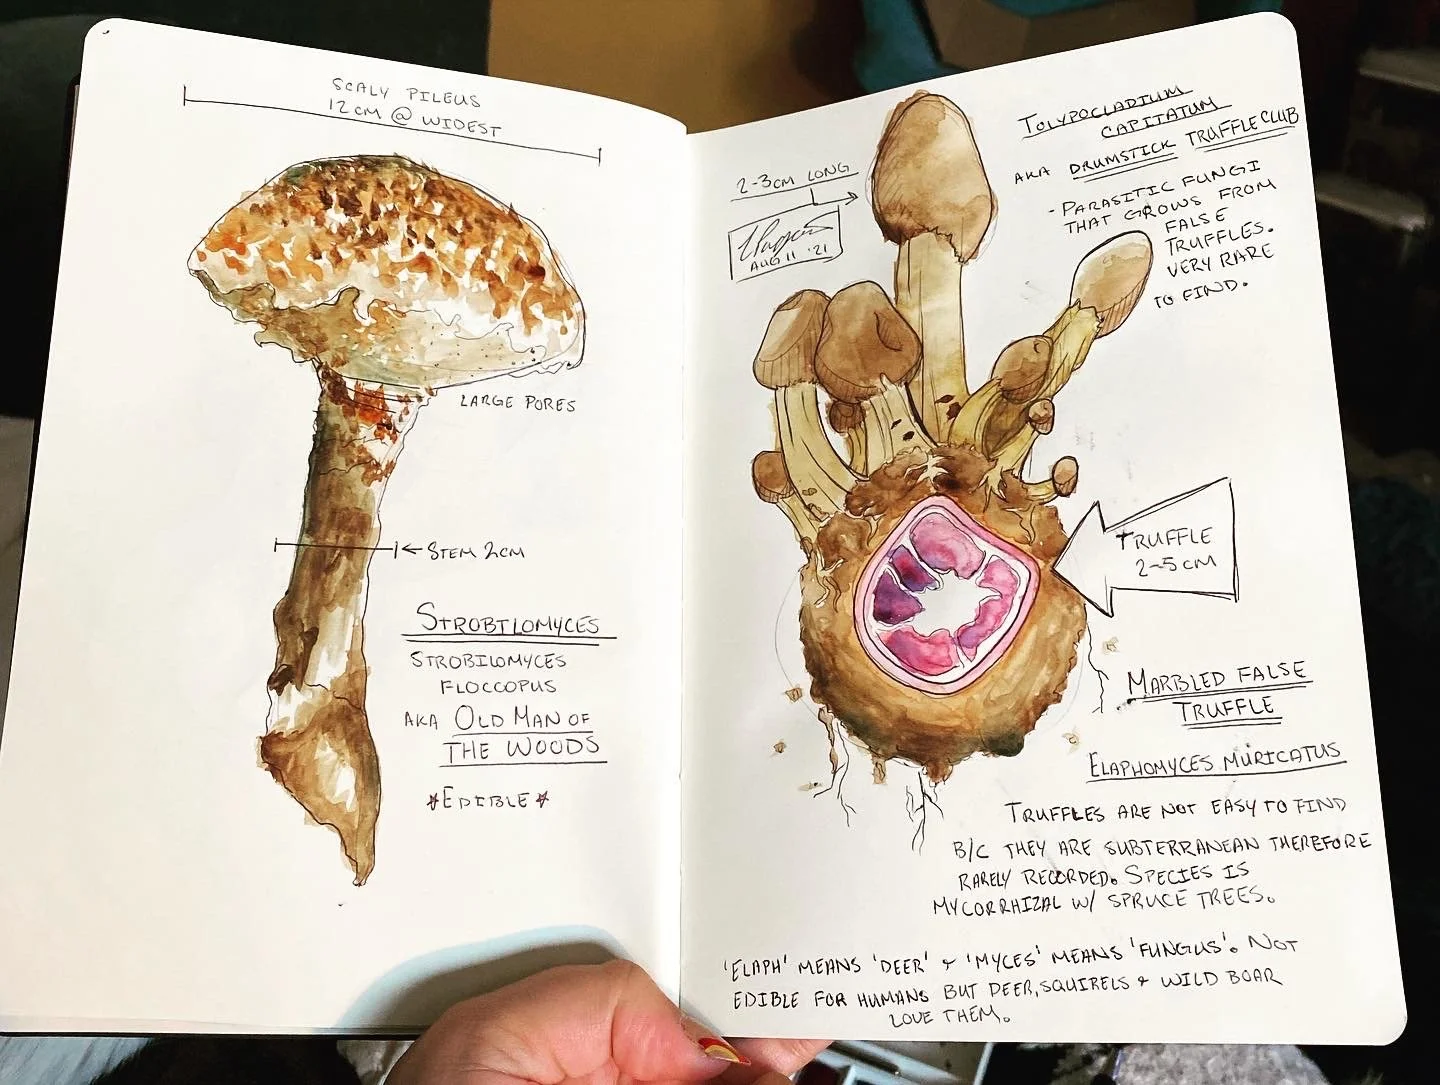 SCALY PILEUS
12CM @ WIDEST
LARGE PORES
← STEM 2CM
STROBILOMYCES
STROBILOMYCES
FLOCCOPUS
AKA OLD MAN OF
THE WOODS
*EDIBLE*
2-3CM LONG
AUG 11 '21
TOLYPOCLADIUM
CAPITATUM
AKA DRUMSTICK TRUFFLECLUB
- PARASITIC FUNGI
THAT GROWS FROM
FALSE
TRUFFLES.
VERY RARE
TO FIND.
TRUFFLE
2-5CM
MARBLED FALSE
TRUFFLE
ELAPHOMYCES MURICATUS
TRUFFLES ARE NOT EASY TO FIND
B/C THEY ARE SUBTERRANEAN THEREFORE
RARELY RECORDED. SPECIES IS
MYCORRHIZAL W/ SPRUCE TREES.
'ELAPH' MEANS 'DEER' & 'MYCES' MEANS 'FUNGUS'. NOT
EDIBLE FOR HUMANS BUT DEER, SQUIRELS & WILD BOAR
LOVE THEM.